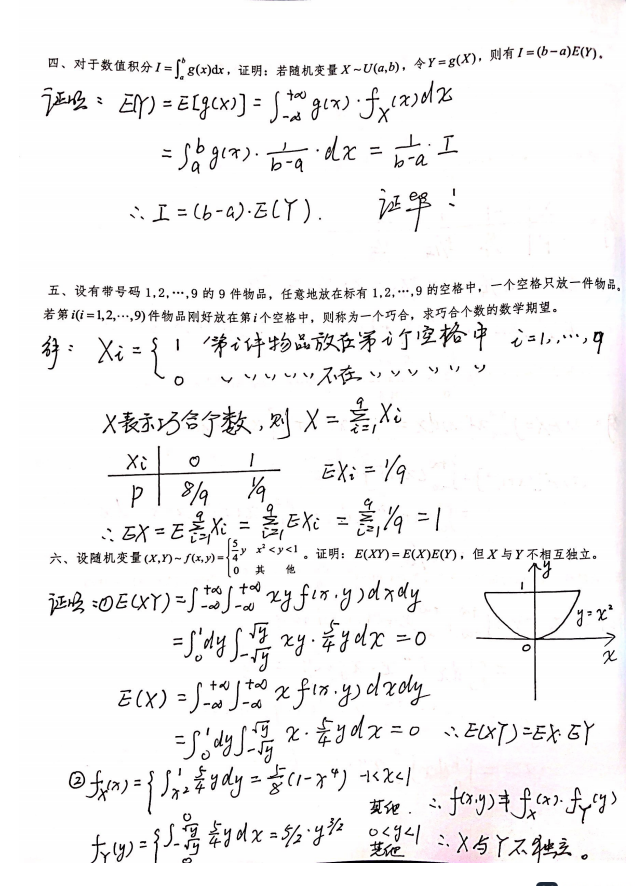 四、对于数值积分 I=∫_a^b g(x)dx，证明：若随机变量 X～U(a,b)，令 Y=g(X)，则有 I=(b-a)E(Y)。
证明：E(Y)=E[g(X)]=∫_{-∞}^{+∞} g(x)·f_X(x)dx
=∫_a^b g(x)·1/(b-a)·dx = 1/(b-a) I
∴ I=(b-a)·E(Y). 证毕！
五、设有带号码 1,2,…,9 的 9 件物品，任意地放在标有 1,2,…,9 的空格中，一个空格只放一件物品。
若第 i(i=1,2,…,9) 件物品刚好放在第 i 个空格中，则称为一个巧合，求巧合个数的数学期望。
解：Xi={ 1 第i件物品放在第i个空格中 i=1,…,9
0 〃〃〃〃〃不在〃〃〃〃〃〃
X表示巧合个数，则 X=∑_{i=1}^9 Xi
Xi | 0 1
P | 8/9 1/9 EXi=1/9
∴EX=E∑_{i=1}^9 Xi = ∑_{i=1}^9 EXi = ∑_{i=1}^9 1/9 =1
六、设随机变量(X,Y)～f(x,y)={ 5/4 y x²<y<1
0 其 他 。证明：E(XY)=E(X)E(Y)，但 X 与 Y 不相互独立。
证明：①E(XY)=∫_{-∞}^{+∞}∫_{-∞}^{+∞} xyf(x,y)dxdy
=∫_0^1 dy∫_{-√y}^{√y} xy·5/4 ydx =0
y
1
y=x²
0
x
E(X)=∫_{-∞}^{+∞}∫_{-∞}^{+∞} xf(x,y)dxdy
=∫_0^1 dy∫_{-√y}^{√y} x·5/4 ydx=0 ∴E(XY)=EX·EY
②f_X(x)={ ∫_{x²}^1 5/4 ydy=5/8(1-x⁴) -1<x<1
0 其他. ∴f(x,y)≠f_X(x)·f_Y(y)
f_Y(y)={ ∫_{-√y}^{√y} 5/4 ydx=5/2·y^{3/2} 0<y<1
0 其他 ∴X与Y不独立。